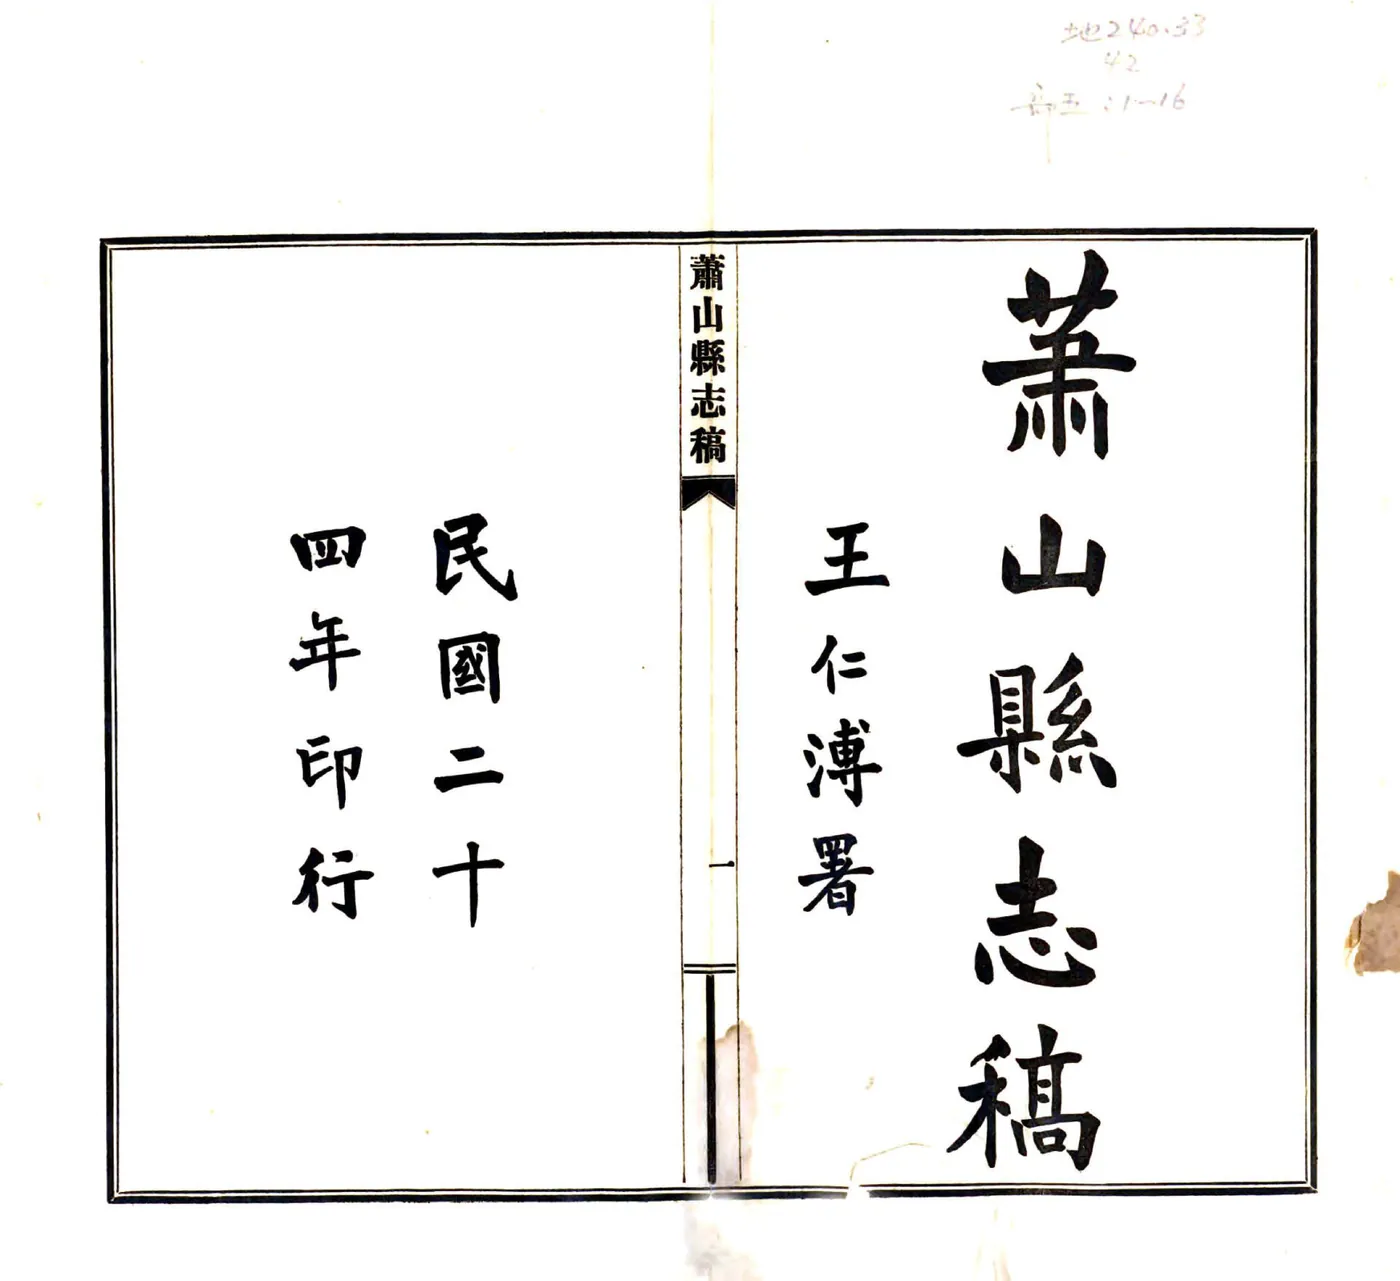 地240.33
42
部五:1-16
蕭山縣志稿
王仁溥署
蕭山縣志稿
一
民國二十
四年印行